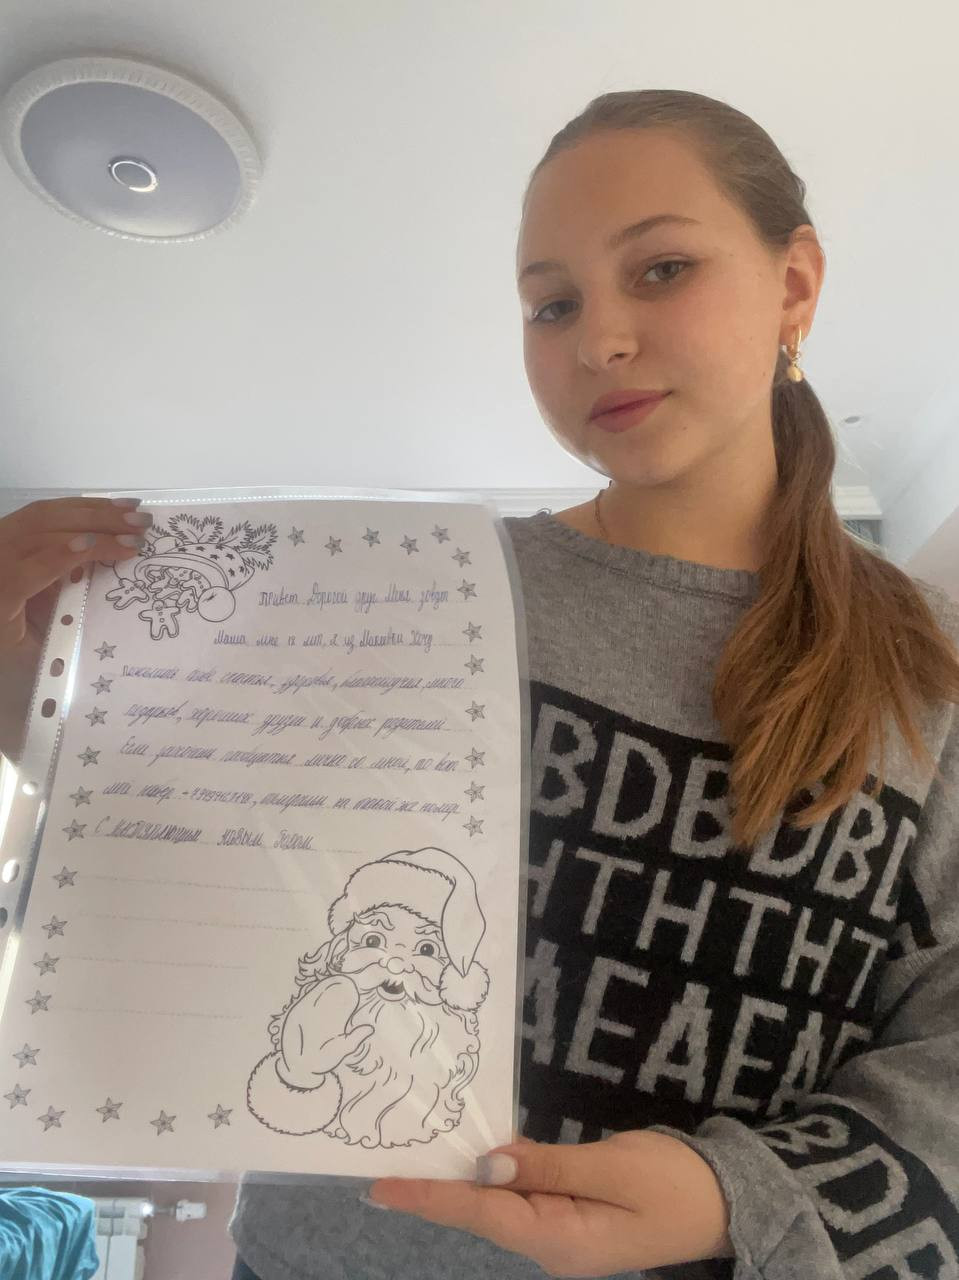 Привет Дорогой друг Меня зовут
Маша мне 12 лет, я из Макеевки Хочу
пожелать тебе счастья, здоровья, благополучия, много
подарков, хороших друзей и добрых родителей.
Если захочешь пообщаться лично со мной, то вот
мой номер, на такой же номер
С наступающим новым годом
BDBDBD
HTHTHT
AEAEAE
BDB